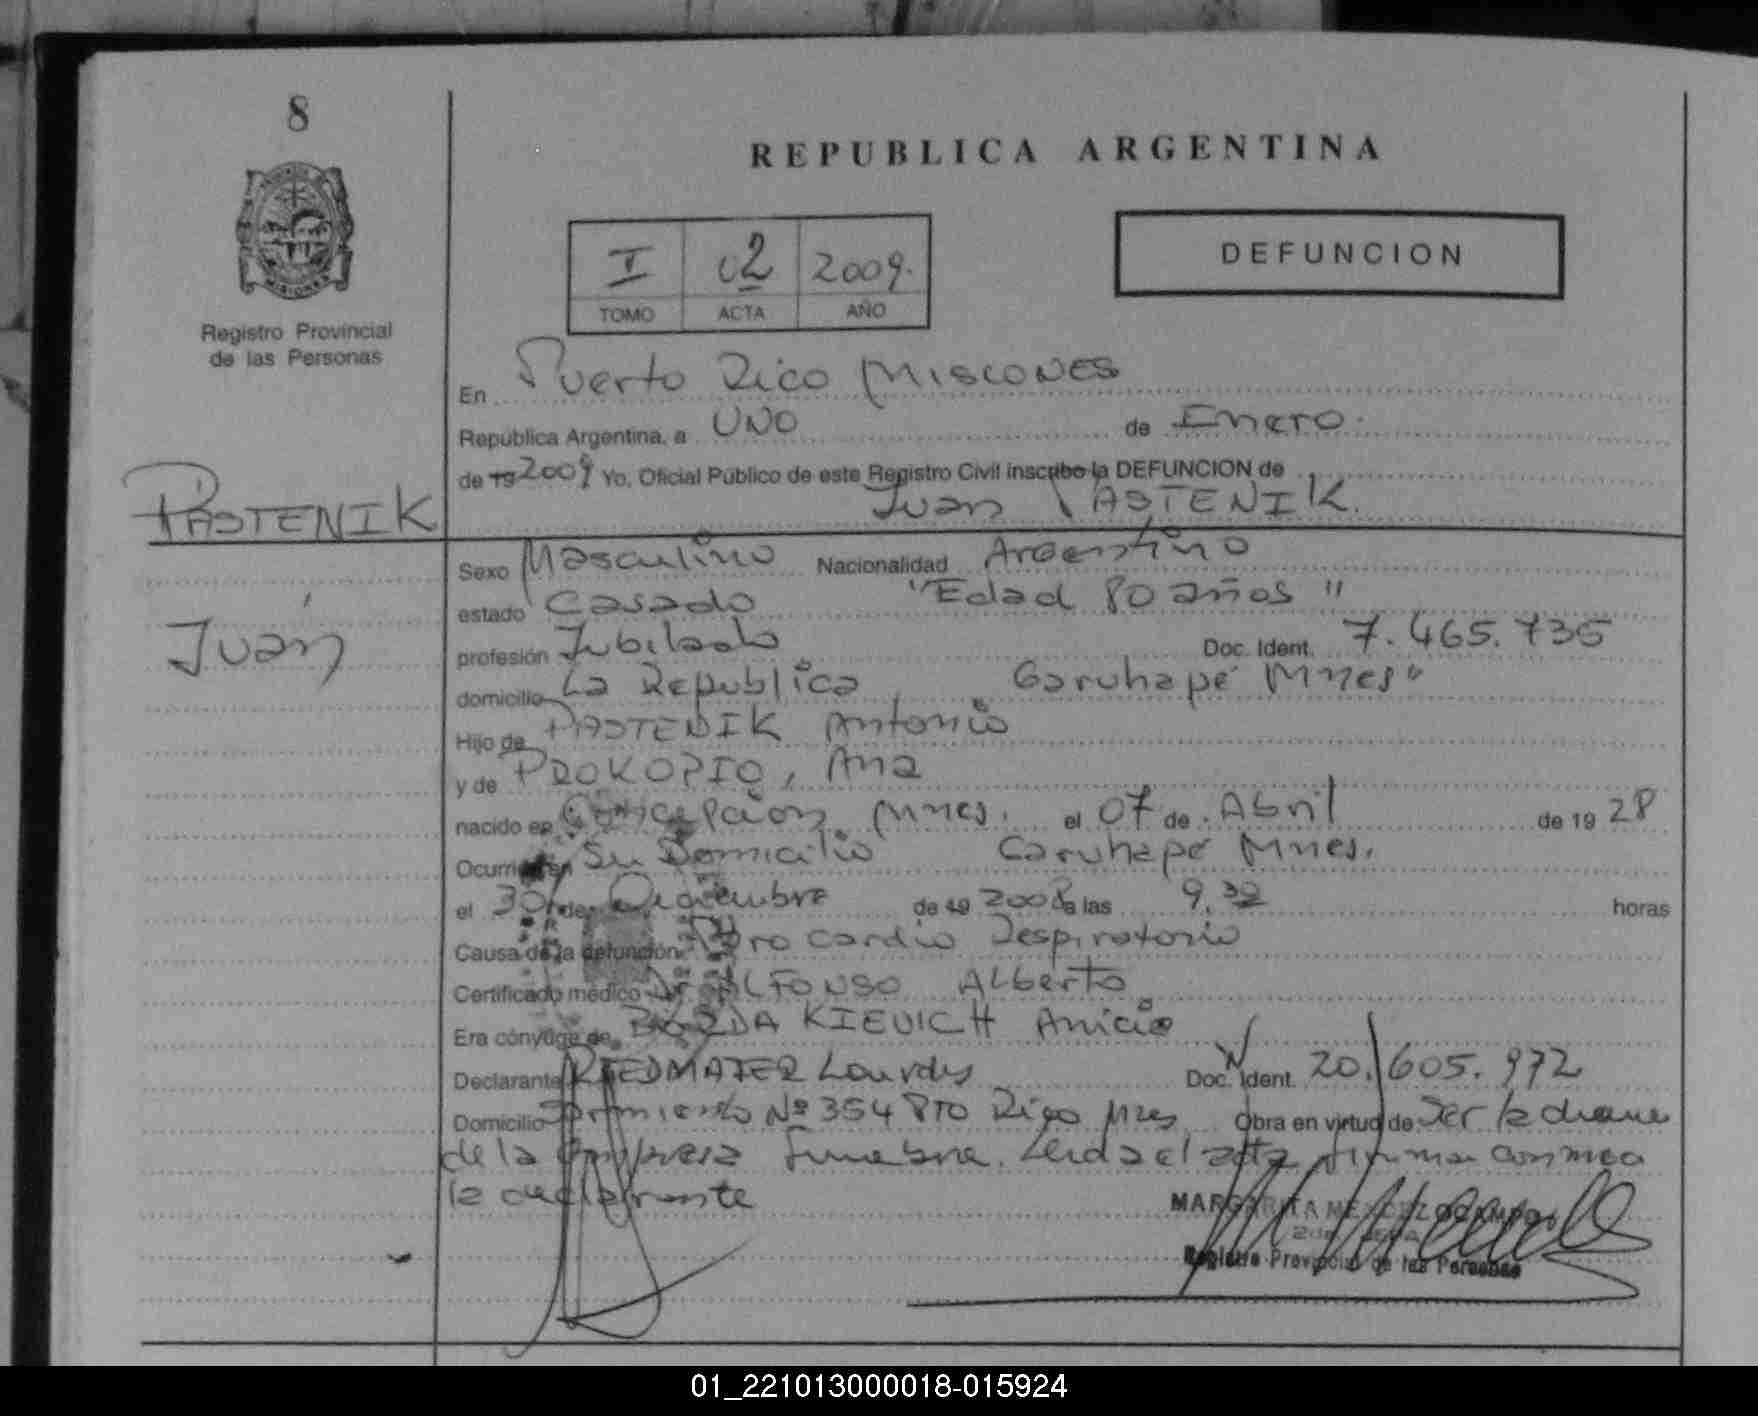 8
REPUBLICA ARGENTINA
MISIONES
Registro Provincial
de las Personas
I 02 2009.
TOMO ACTA AÑO
DEFUNCION
En Puerto Rico Misiones
República Argentina, a UNO de Enero.
de 19 2009 Yo, Oficial Público de este Registro Civil inscribo la DEFUNCION de
Juan PASTENIK.
PASTENIK
Juan
Sexo Masculino Nacionalidad Argentino
estado Casado "Edad 80 años"
profesión Jubilado Doc. Ident. 7.465.735
domicilio La Republica, Garuhapé Mnes"
Hijo de PASTENIK Antonio
y de PROKOPIO, Ana
nacido en Concepcion Mnes. el 07 de Abril de 1928
Ocurrió en Su Domicilio Garuhapé Mnes.
el 30 de Diciembre de 19 2008 a las 9,32 horas
Causa de la defunción Paro cardio Respiratorio
Certificado médico Dr ALFONSO Alberto
Era cónyuge de KIEVICH
Declarante RIEDMAIER Lourdes Doc. Ident. 20.605.972
Domicilio Sarmiento Nº 354 Pto Rico Mnes Obra en virtud de Ser
de la Empresa Funebre. Leida el acta firma conmigo
la declarante
MARGARITA OCAMPO
Registro Provincial de las Personas
01_221013000018-015924